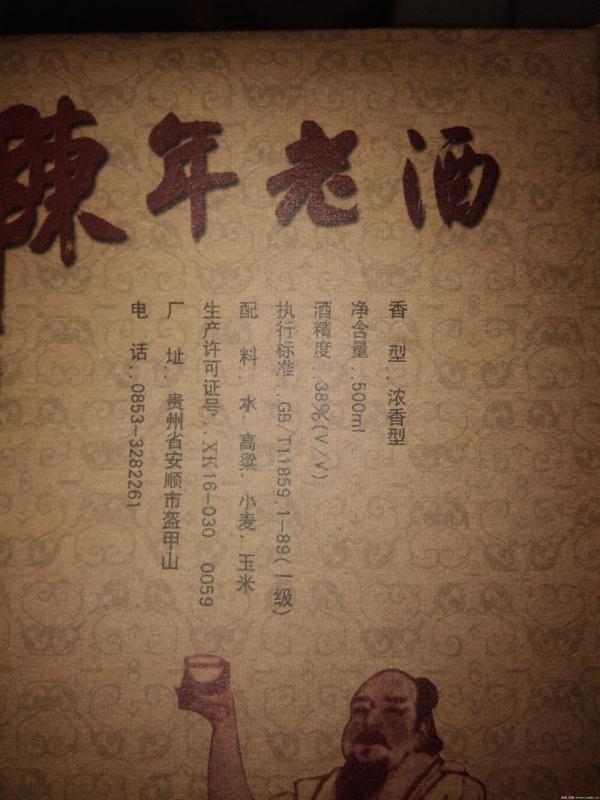 陳年老酒
香 型：浓香型
净含量：500ml
酒精度：38%(V/V)
执行标准：GB/T11859.1-89(一级)
配 料：水、高粱、小麦、玉米
生产许可证号：XK16-030 0059
厂 址：贵州省安顺市盔甲山
电 话：0853-3282261